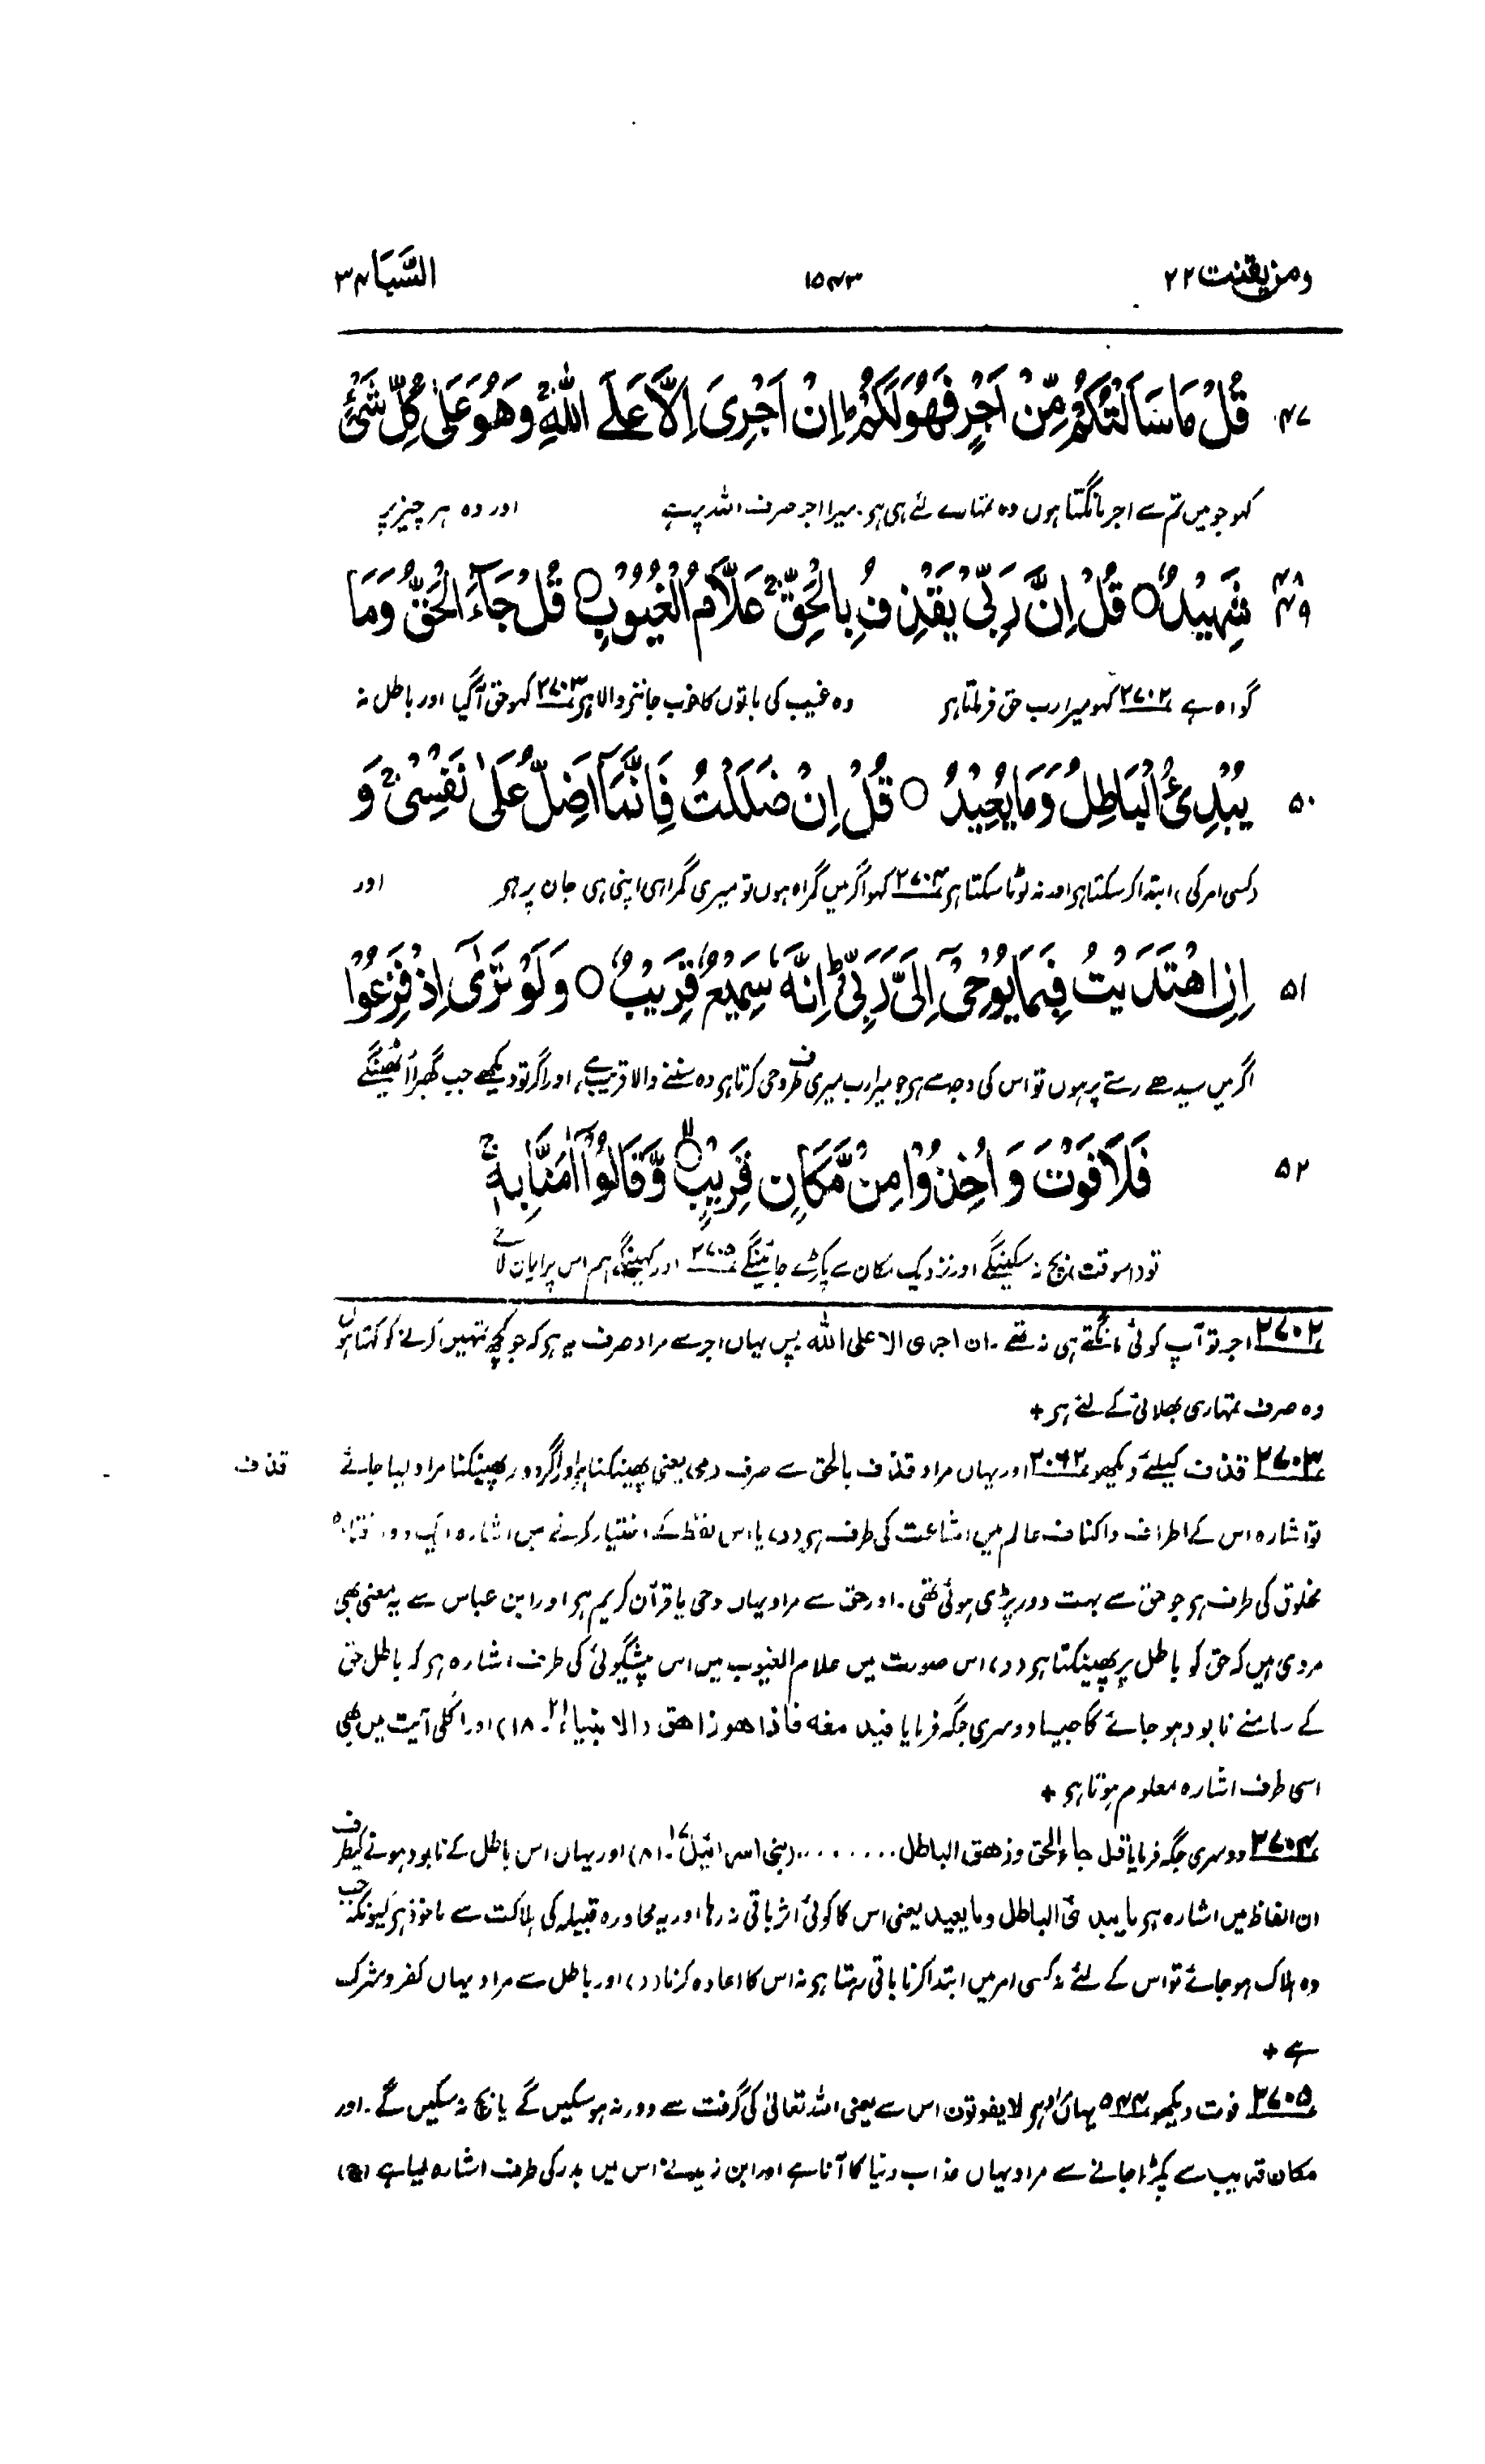 ومن یقنت ۲۲ ۱۵۴۳ السَّبَا ۳۴
۴۷ قُلْ مَا سَاَلْتُكُمْ مِّنْ اَجْرٍ فَهُوَ لَكُمْ ؕ اِنْ اَجْرِیَ اِلَّا عَلَی اللّٰهِ ۚ وَهُوَ عَلٰی كُلِّ شَیْءٍ
کہو جو میں تم سے اجر مانگتا ہوں وہ تمہارے لئے ہی ہو۔ میرا اجر صرف اللہ پر ہے اور وہ ہر چیز پر
۴۸ ۴۹ شَهِیْدٌ ○ قُلْ اِنَّ رَبِّیْ یَقْذِفُ بِالْحَقِّ ۚ عَلَّامُ الْغُیُوْبِ ○ قُلْ جَآءَ الْحَقُّ وَمَا
گواہ ہے ۲۷۰۲ کہو میرا رب حق فرماتا ہو وہ غیب کی باتوں کا خوب جاننے والا ہو ۲۷۰۳ کہو حق آگیا اور باطل نہ
۵۰ یُبْدِئُ الْبَاطِلُ وَمَا یُعِیْدُ ○ قُلْ اِنْ ضَلَلْتُ فَاِنَّمَاۤ اَضِلُّ عَلٰی نَفْسِیْ ۚ وَ
(کسی امر کی) ابتدا کر سکتا ہو اور نہ لوٹا سکتا ہو ۲۷۰۴ کہو اگر میں گمراہ ہوں تو میری گمراہی اپنی ہی جان پر ہو اور
۵۱ اِنِ اهْتَدَیْتُ فَبِمَا یُوْحِیْۤ اِلَیَّ رَبِّیْ ؕ اِنَّهٗ سَمِیْعٌ قَرِیْبٌ ○ وَلَوْ تَرٰۤی اِذْ فَزِعُوْا
اگر میں سیدھے رستے پر ہوں تو اس کی وجہ سے ہو جو میرا رب میری طرف وحی کرتا ہو وہ سننے والا قریب ہے، اور اگر تو دیکھے جب گھبرا اٹھینگے
۵۲ فَلَا فَوْتَ وَ اُخِذُوْا مِنْ مَّكَانٍ قَرِیْبٍ ○ وَّقَالُوْۤا اٰمَنَّا بِهٖ ۚ
تو (اسوقت) بچ نہ سکینگے اور نزدیک مکان سے پکڑے جائینگے ۲۷۰۵ اور کہینگے ہم اس پر ایمان لائے
۲۷۰۲ اجر تو آپ کوئی مانگتے ہی نہ تھے۔ ان اجری الا علی اللہ پس یہاں اجر سے مراد صرف یہ ہو کہ جو کچھ تمہیں کرنے کو کہتا ہوں
وہ صرف تمہاری بھلائی کے لئے ہو +
۲۷۰۳ قذف کیلئے دیکھو ۲۰۶۲ اور یہاں مراد قذف بالحق سے صرف رمی یعنی پھینکنا ہو اور اگر دور پھینکنا مراد لیا جائے قذف
تو اشارہ اس کے اطراف و اکناف عالم میں اشاعت کی طرف ہو (د) یا اس لفظ کے اختیار کرنے میں اشارہ ایک دور
مخلوق کی طرف ہو جو حق سے بہت دور پڑی ہوئی تھی۔ اور حق سے مراد یہاں وحی یا قرآن کریم ہو اور ابن عباس سے یہ معنی بھی
مروی ہیں کہ حق کو باطل پر پھینکتا ہو (د) اس صورت میں علام الغیوب میں اس پیشگوئی کی طرف اشارہ ہو کہ باطل حق
کے سامنے نابود ہو جائے گا جیسا دوسری جگہ فرمایا فیدمغہ فاذا ھو زاھق (الانبیاء ۲۱۔ ۱۸) اور اگلی آیت میں بھی
اسی طرف اشارہ معلوم ہوتا ہو +
۲۷۰۴ دوسری جگہ فرمایا قل جاء الحق وزھق الباطل ........ (بنی اسرائیل ۱۷۔ ۸۱) اور یہاں اس باطل کے نابود ہونے کیطرف
ان الفاظ میں اشارہ ہو ما یبدئ الباطل وما یعید یعنی اس کا کوئی اثر باقی نہ رہا اور یہ محاورہ قبیلہ کی ہلاکت سے ماخوذ ہو کیونکہ جب
وہ ہلاک ہو جائے تو اس کے لئے نہ کسی امر میں ابتدا کرنا باقی رہتا ہو نہ اس کا اعادہ کرنا (د) اور باطل سے مراد یہاں کفر و شرک
ہے +
۲۷۰۵ فوت دیکھو ۵۴۴ یہاں مراد ہو لا یفوتون اس سے یعنی اللہ تعالیٰ کی گرفت سے دور نہ ہو سکیں گے یا بچ نہ سکیں گے۔ اور
مکان قریب سے پکڑا جانے سے مراد یہاں عذاب دنیا کا آنا ہے اور ابن زید نے اس میں بدر کی طرف اشارہ لیا ہے (ج)